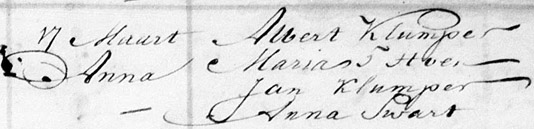 17 Maart Albert Klumper
Anna Maria
Jan Klumper
Anna Swart